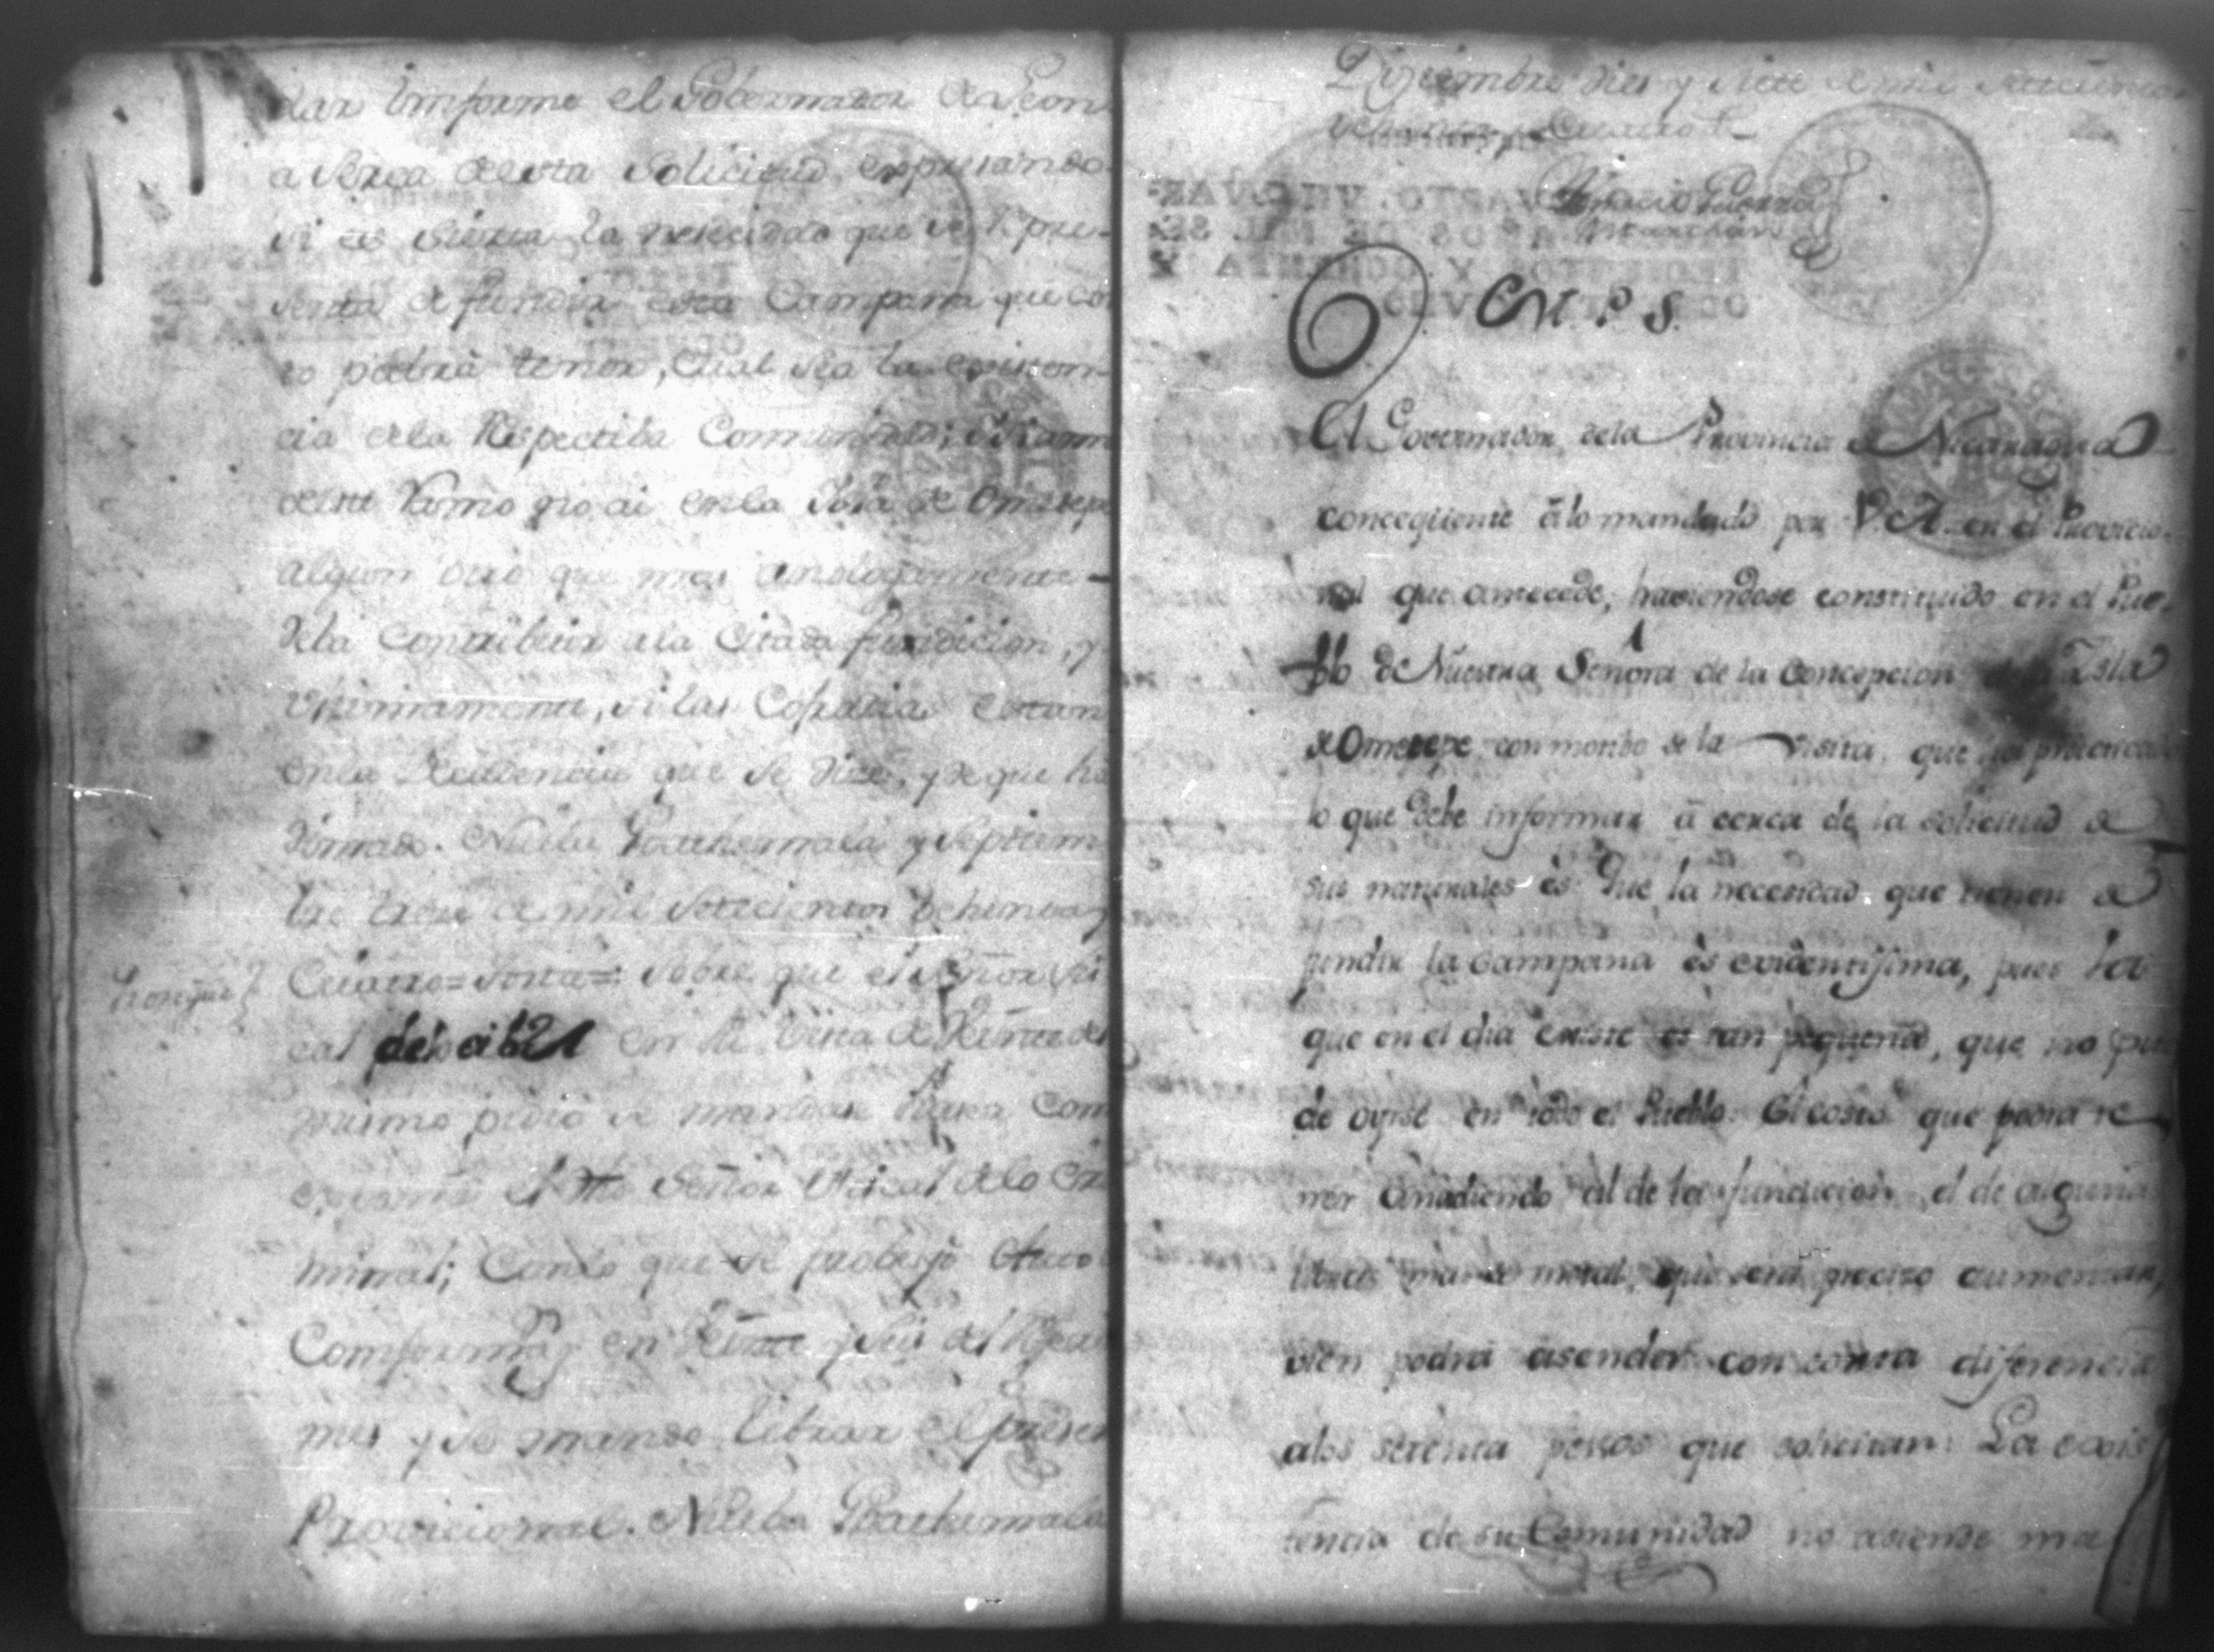 dar Ymforme el Gobernador de Leon
a serca de esta solicitud, expresando
si es sierta la nesecidad que se repre-
senta de fundir esta Campana que cos
to podrá tener, cual sea la existen
cia de la Respectiba Comunidad;
de este Ramo no ai en la Ysla de Ometepe
algun otro que mas analogamente
deba Contribuir a la Citada fundicion, y
ultimamente, si las Cofradias estan
en la Decadencia que se dise, y de que ha
Nueba Goathemala y Septiem
bre trese de mil setecientos ochenta y
Cuatro = Sobre que el Señor Fis
cal de lo cibil en su vista de Veinte del
mismo pidió se mandase
el Señor Fiscal de lo Cri
minal; Con lo que se produjo
Conformes en Veinte y seis del
mes y se mandó librar el presen
Provicional. Nueba Goathemala
Diziembre dies y siete de mil setecientos
ochenta y Cuatro
Ygnacio Guerra
Marchan
M. P. S.
El Governador de la Provincia de Nicaragua
conseqüente á lo mandado por V. A. en el Provicio-
nal que antecede, haviendose constituido en el Pue-
blo de Nuestra Señora de la Concepcion de la Isla
de Ometepe, con motibo de la visita, que ha practicado
lo que debe informar á cerca de la solicitud de
sus naturales es: Que la necesidad, que tienen de
fundir la campana és evidentisima, pues la
que en el dia existe es tan pequeña, que no pue
de oyrse en todo el Pueblo. El costo que podrá te
ner añadiendo al de la fundicion, el de algunas
libras mas de metal, que será preciso aumentar,
vien podrá asender con corta diferencia
a los setenta pessos que solicitan: La exis
tencia de su Comunidad no asiende mas